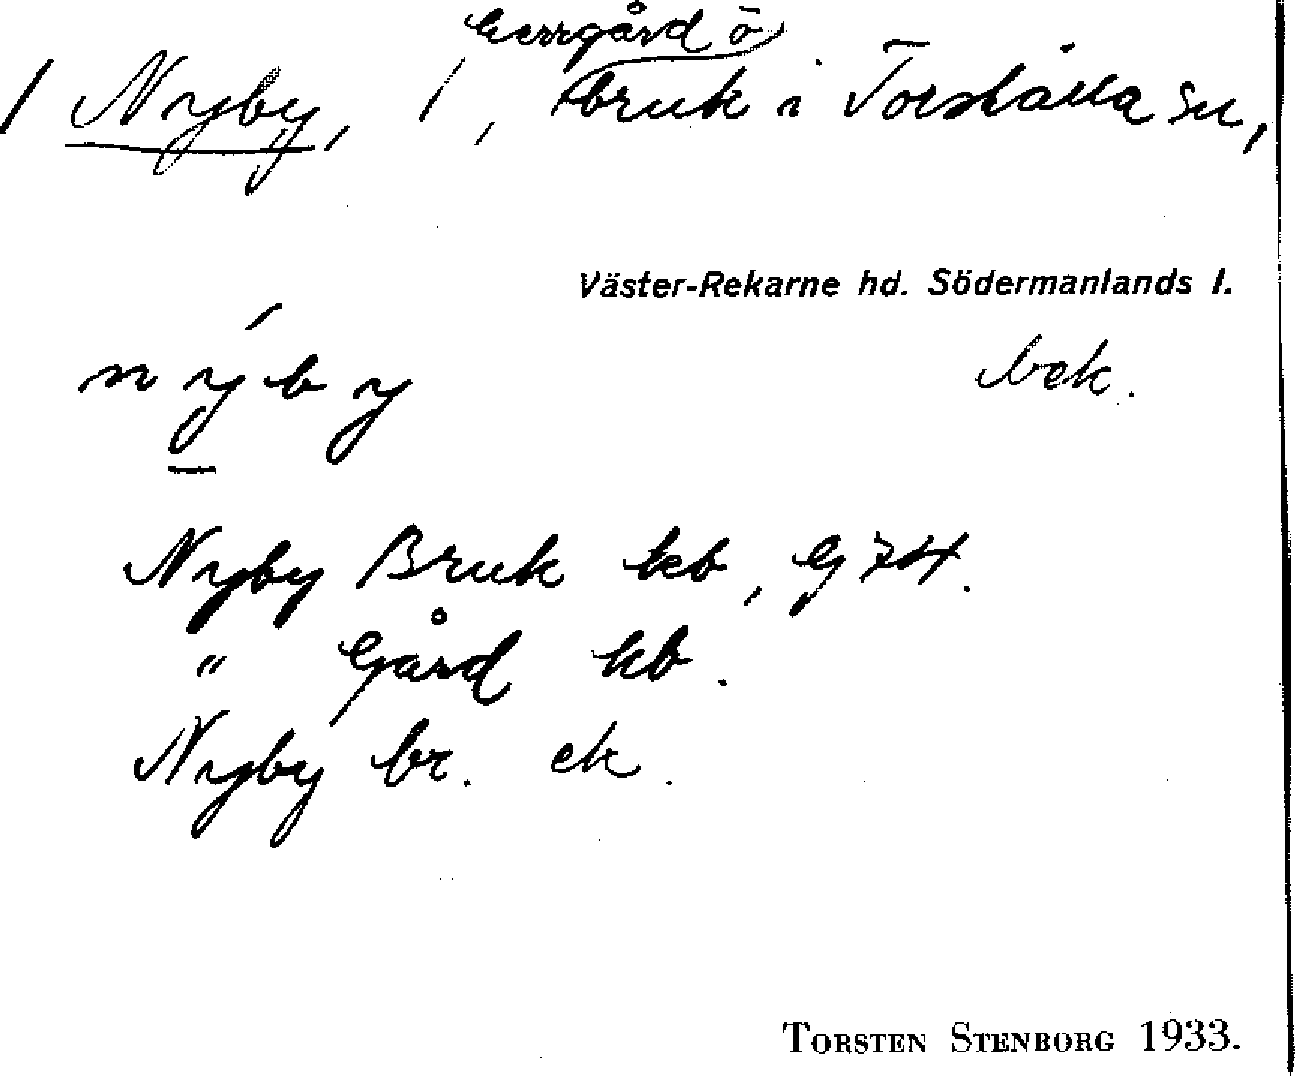 herrgård o
/ Nyby, /, bruk i Torshälla sn,
Väster-Rekarne hd. Södermanlands l.
nýby bek.
Nyby Bruk kb, G 74.
" Gård kb.
Nyby br. ek.
TORSTEN STENBORG 1933.